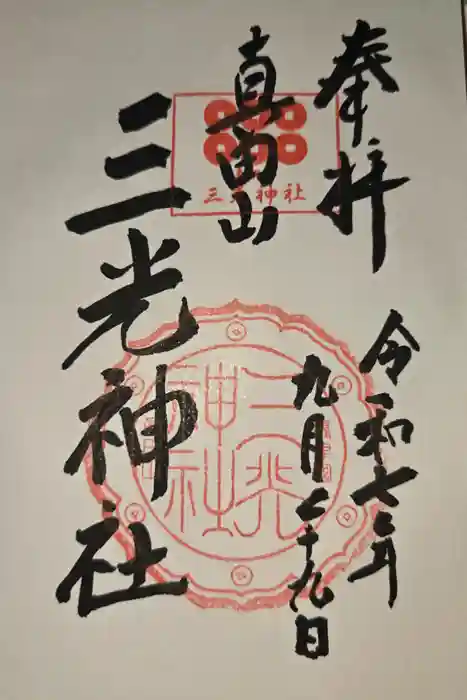 奉拝
令和七年
九月二十九日
真田山
三光神社
三光神社
三光神社